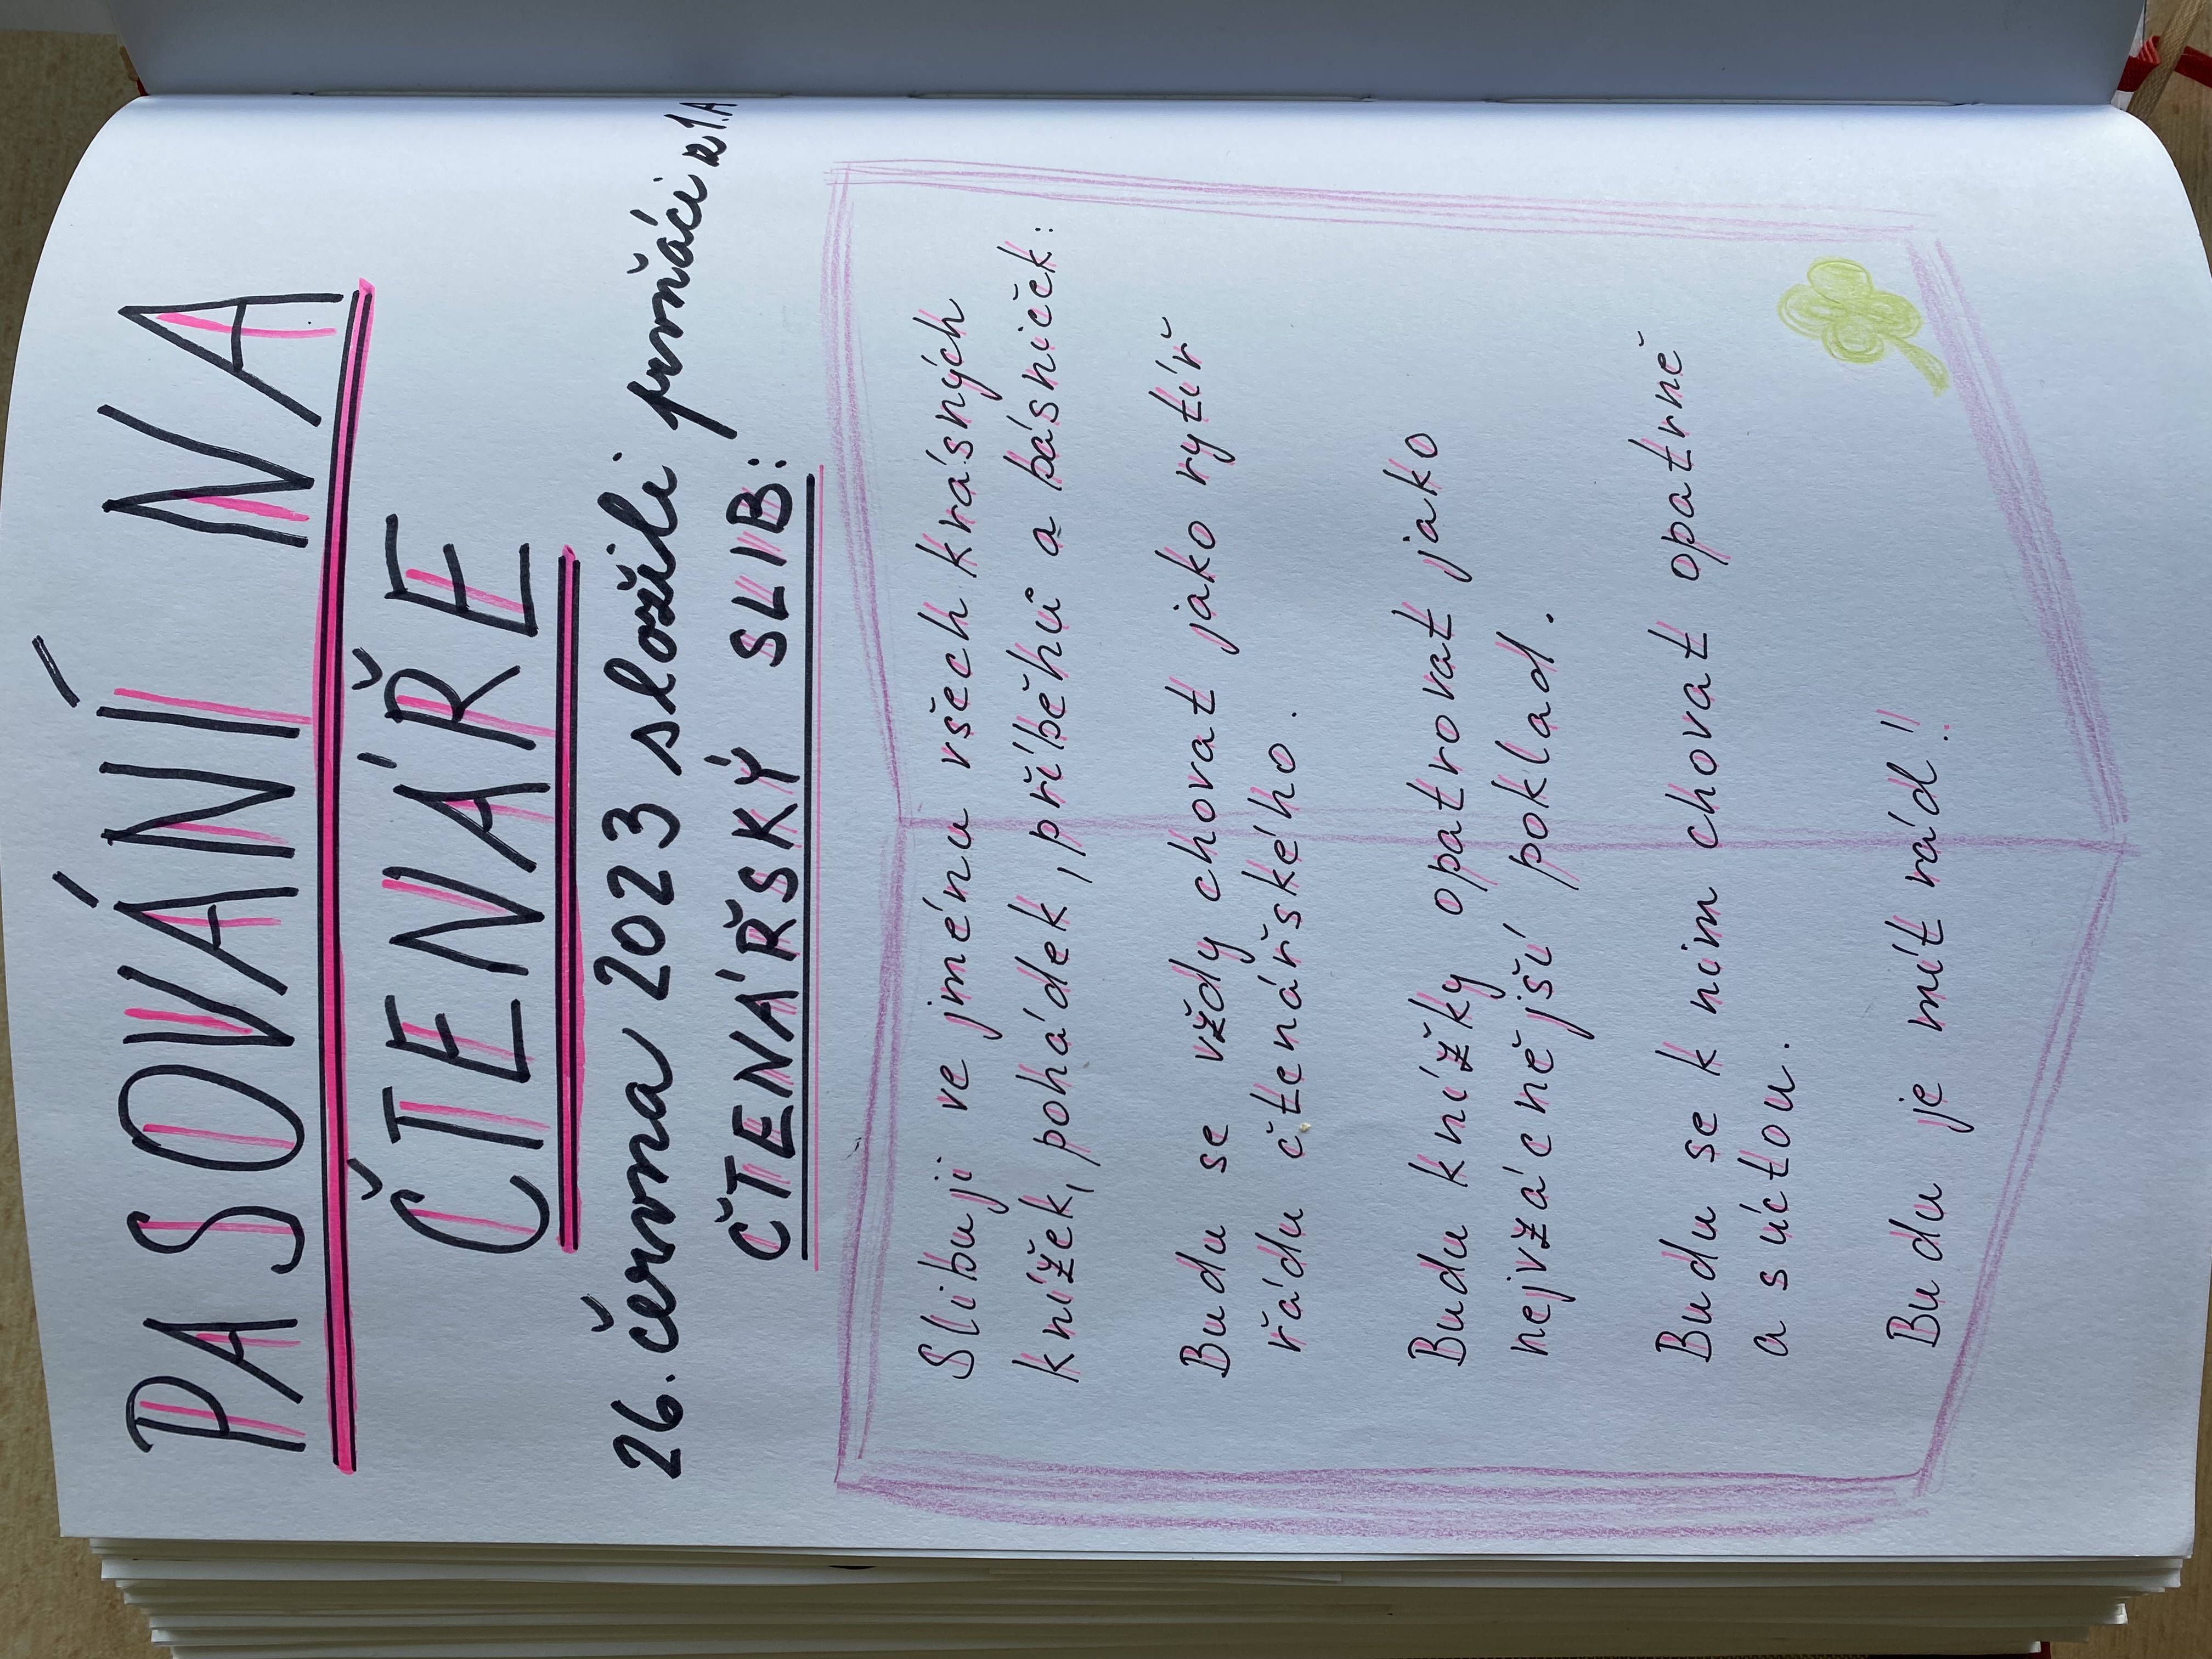 PASOVÁNÍ NA
ČTENÁŘE
26. června 2023 složili prvňáci z 1.A
ČTENÁŘSKÝ SLIB:
Slibuji ve jménu všech krásných
knížek, pohádek, příběhů a básniček:
Budu se vždy chovat jako rytíř
řádu čtenářského.
Budu knížky opatrovat jako
nejvzácnější poklad.
Budu se k nim chovat opatrně
a s úctou.
Budu je mít rád!!